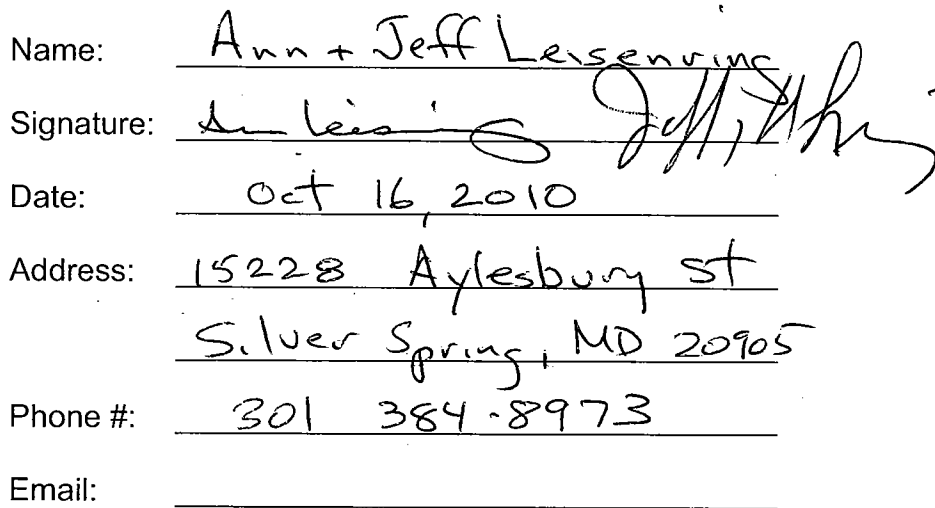 Name: Ann + Jeff Leisenring
Signature: Ann Leisenring
Date: Oct 16, 2010
Address: 15228 Aylesbury St
Silver Spring, MD 20905
Phone #: 301 384-8973
Email: